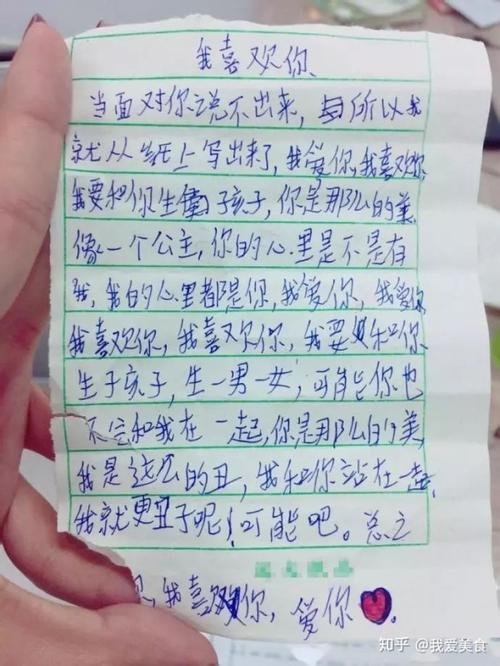 我喜欢你
当面对你说不出来，所以我
就从纸上写出来了，我爱你，我喜欢你
我要和你生子孩子，你是那么的美
像一个公主，你的心里是不是有
我，我的心里都是你，我爱你，我爱你
我喜欢你，我喜欢你，我要和你
生子孩子，生一男一女，可能你也
不会和我在一起，你是那么的美，
我是这么的丑，我和你站在一起，
我就更丑子呢！可能吧。总之
，我喜欢你，爱你
知乎 @我爱美食